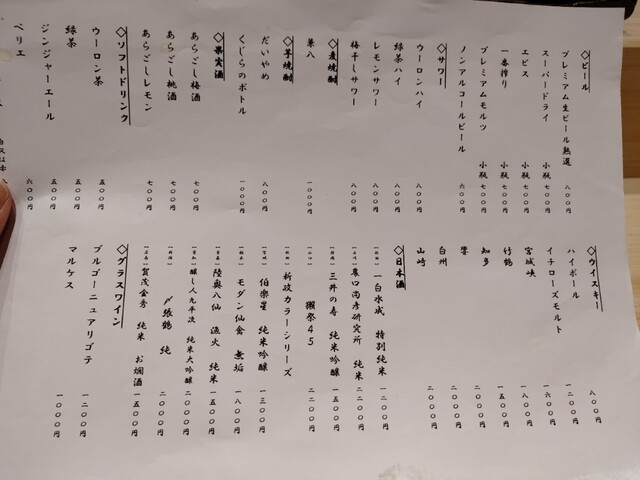 ◇ビール
プレミアム生ビール熟選 八〇〇円
スーパードライ 小瓶 七〇〇円
エビス 小瓶 七〇〇円
一番搾り 小瓶 七〇〇円
プレミアムモルツ 小瓶 七〇〇円
ノンアルコールビール 六〇〇円
◇サワー
ウーロンハイ 八〇〇円
緑茶ハイ 八〇〇円
レモンサワー 八〇〇円
梅干しサワー 八〇〇円
◇麦焼酎
兼八 一〇〇〇円
◇芋焼酎
だいやめ 八〇〇円
くじらのボトル 一〇〇〇円
◇果実酒
あらごし梅酒 七〇〇円
あらごし桃酒 七〇〇円
あらごしレモン 七〇〇円
◇ソフトドリンク
ウーロン茶 五〇〇円
緑茶 五〇〇円
ジンジャーエール 五〇〇円
ペリエ 六〇〇円
◇ウイスキー
ハイボール 八〇〇円
イチローズモルト 一二〇〇円
宮城峡 一六〇〇円
竹鶴 一八〇〇円
知多 一五〇〇円
響 二〇〇〇円
白州 二〇〇〇円
山崎 二〇〇〇円
◇日本酒
一白水成 特別純米 一二〇〇円
農口尚彦研究所 純米 二〇〇〇円
三井の寿 純米吟醸 一五〇〇円
獺祭45 二二〇〇円
新政カラーシリーズ
伯楽星 純米吟醸 一三〇〇円
モダン仙禽 無垢 一八〇〇円
陸奥八仙 漁火 純米 一五〇〇円
醸し人九平次 純米大吟醸 二〇〇〇円
〆張鶴 純 二〇〇〇円
賀茂金秀 純米 お燗酒 一五〇〇円
◇グラスワイン
ブルゴーニュアリゴテ 一二〇〇円
マルケス 一〇〇〇円